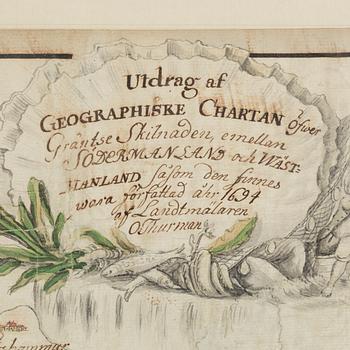 Utdrag af
GEOGRAPHISKE CHARTAN öfwer
Gräntse Skilnaden, emellan
SÖDERMANLAND och WÄST-
MANLAND såsom den finnes
wara författad åhr 1694
af Landtmälaren
O. Thurman